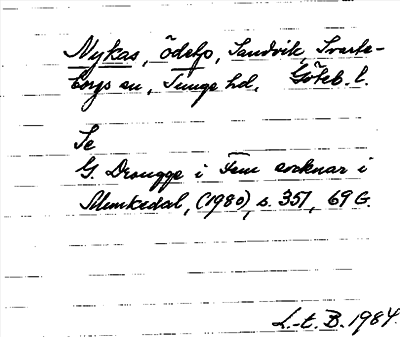 Nykas, Ödelp, Sandvik, Svarte-
borgs sn, Tunge hd, Göteb. l.
Se
G. Drougge i Fem socknar i
Munkedal, (1980), s. 351, 69 G.
L.-t. B. 1984.